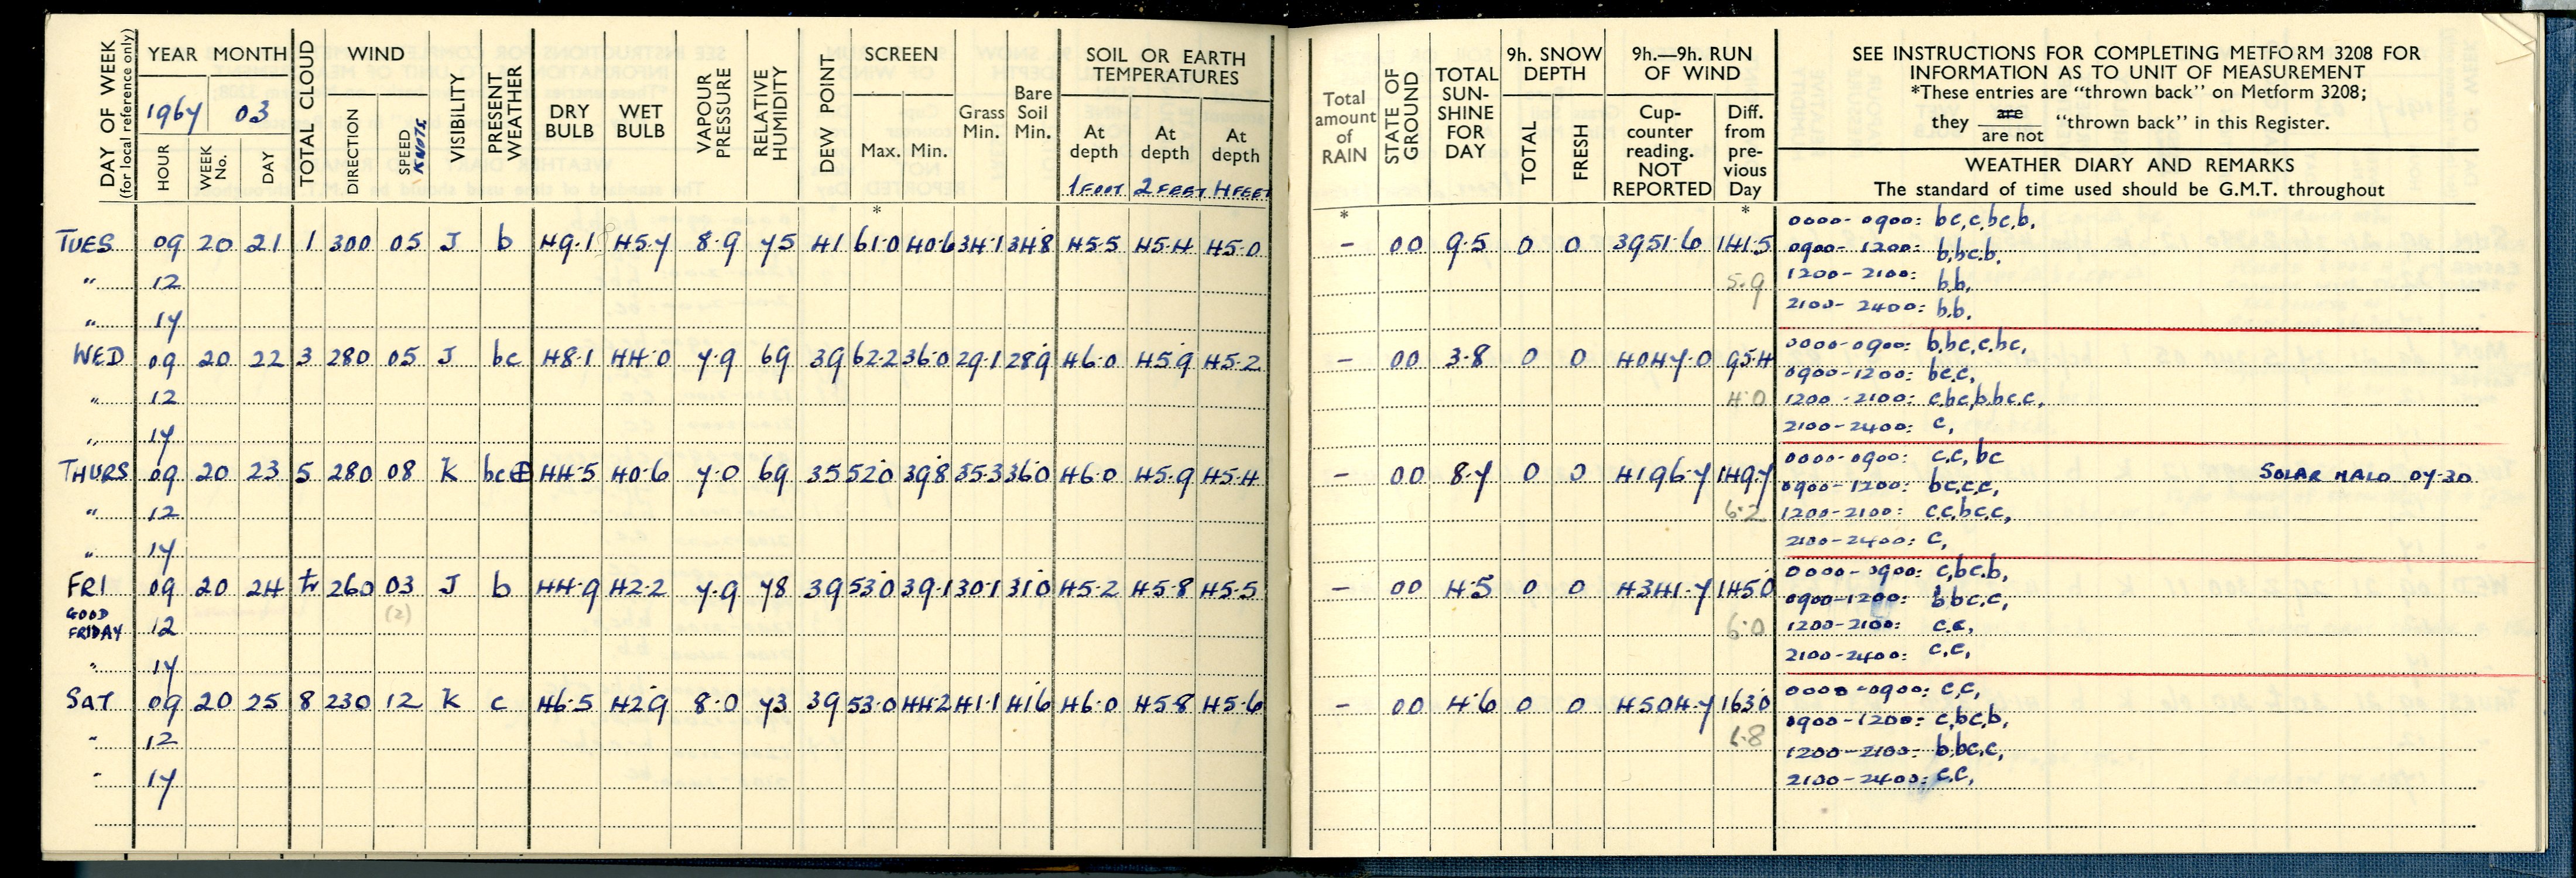 DAY OF WEEK (for local reference only) YEAR MONTH TOTAL CLOUD WIND VISIBILITY PRESENT WEATHER DRY BULB WET BULB VAPOUR PRESSURE RELATIVE HUMIDITY DEW POINT SCREEN SOIL OR EARTH TEMPERATURES
1967 03
HOUR WEEK No. DAY DIRECTION SPEED KNOTS Max. Min. Grass Min. Bare Soil Min. At depth At depth At depth
1 FOOT 2 FEET 4 FEET
*
TUES 09 20 21 1 300 05 J b 49.1 45.7 8.9 75 41 61.0 40.6 34.1 34.8 45.5 45.4 45.0
" 12
" 17
WED 09 20 22 3 280 05 J bc 48.1 44.0 7.9 69 39 62.2 36.0 29.1 28.9 46.0 45.9 45.2
" 12
" 17
THURS 09 20 23 5 280 08 K bc⊕ 44.5 40.6 7.0 69 35 52.0 39.8 35.3 36.0 46.0 45.9 45.4
" 12
" 17
FRI 09 20 24 tr 260 03 J b 44.9 42.2 7.9 78 39 53.0 39.1 30.1 31.0 45.2 45.8 45.5
GOOD FRIDAY 12 (2)
" 17
SAT 09 20 25 8 230 12 K c 46.5 42.9 8.0 73 39 53.0 44.2 41.1 41.6 46.0 45.8 45.6
" 12
" 17
Total amount of RAIN STATE OF GROUND TOTAL SUN-SHINE FOR DAY 9h. SNOW DEPTH TOTAL FRESH 9h.—9h. RUN OF WIND Cup-counter reading. NOT REPORTED Diff. from pre-vious Day
SEE INSTRUCTIONS FOR COMPLETING METFORM 3208 FOR
INFORMATION AS TO UNIT OF MEASUREMENT
*These entries are "thrown back" on Metform 3208;
they are / are not "thrown back" in this Register.
WEATHER DIARY AND REMARKS
The standard of time used should be G.M.T. throughout
* *
0000-0900: bc,c,bc,b,
– 00 9.5 0 0 3951.6 141.5 0900-1200: b,bc,b,
5.9 1200-2100: b,b,
2100-2400: b,b,
0000-0900: b,bc,c,bc,
– 00 3.8 0 0 4047.0 95.4 0900-1200: bc,c,
4.0 1200-2100: c,bc,b,bc,c,
2100-2400: c,
0000-0900: c,c,bc
– 00 8.7 0 0 4196.7 149.7 0900-1200: bc,c,c, SOLAR HALO 07.30
6.2 1200-2100: c,c,bc,c,
2100-2400: c,
0000-0900: c,bc,b,
– 00 4.5 0 0 4341.7 145.0 0900-1200: b,bc,c,
6.0 1200-2100: c,c,
2100-2400: c,c,
0000-0900: c,c,
– 00 4.6 0 0 4504.7 163.0 0900-1200: c,bc,b,
6.8 1200-2100: b,bc,c,
2100-2400: c,c,